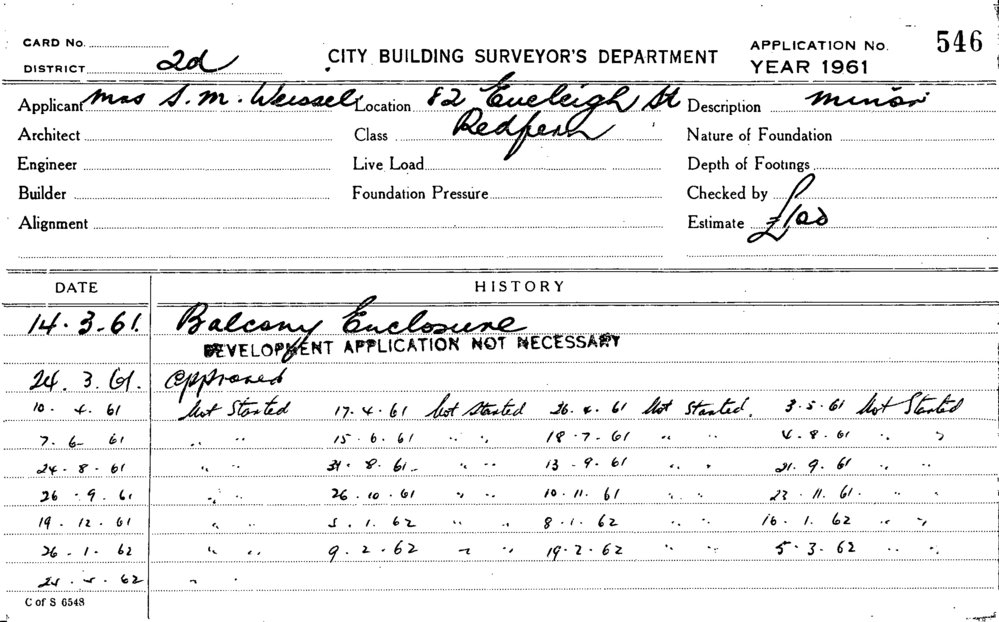 CARD No.
DISTRICT 2d
CITY BUILDING SURVEYOR'S DEPARTMENT
APPLICATION No. 546
YEAR 1961
Applicant Mrs S. M. Weissel Location 82 Eveleigh St Description minor
Redfern
Architect Class Nature of Foundation
Engineer Live Load Depth of Footings
Builder Foundation Pressure Checked by
Alignment Estimate £100
DATE HISTORY
14.3.61. Balcony Enclosure
DEVELOPMENT APPLICATION NOT NECESSARY
24.3.61. Approved
10.4.61 Not Started 17.4.61 Not Started 26.4.61 Not Started. 3.5.61 Not Started
7.6.61 " " 15.6.61 " " 18.7.61 " " 4.8.61 " "
24.8.61 " " 31.8.61 " " 13.9.61 " " 21.9.61 " "
26.9.61 " " 26.10.61 " " 10.11.61 " " 23.11.61. " "
19.12.61 " " 5.1.62 " " 8.1.62 " " 16.1.62 " "
26.1.62 " " 9.2.62 " " 19.2.62 " " 5.3.62 " "
62 " "
C of S 6548